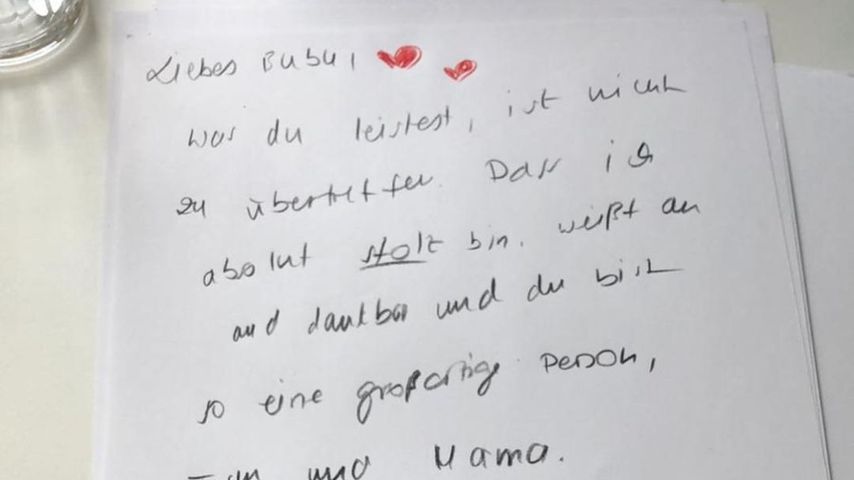 Liebes Bubu,
was du leistest, ist nicht
zu übertreffen. Dass ich
absolut stolz bin. weißt
und dankbar und du bist
so eine großartige Person,
und Mama.